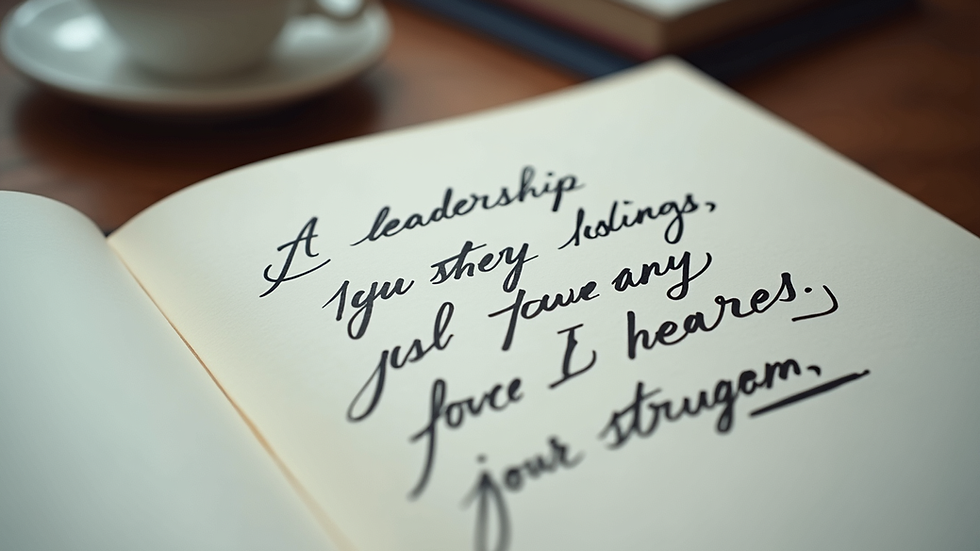 A leadership
1gu sthey listings,
jusl fowe any
fovce I heares.
jour strugam,